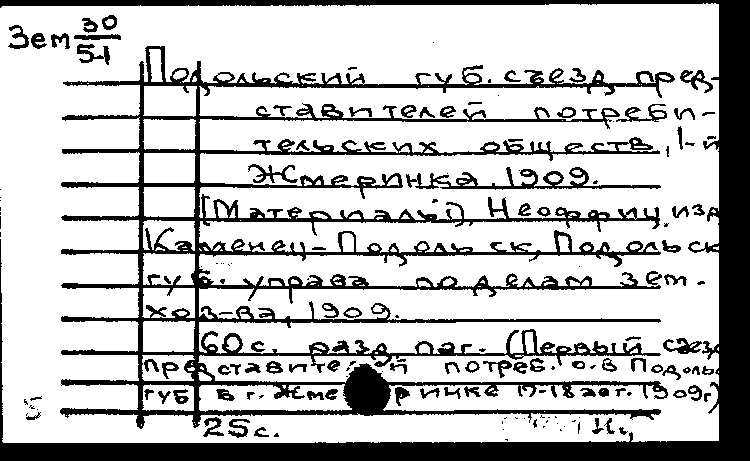 Зем 30/51
Подольский губ. съезд пред-
ставителей потреби-
тельских обществ, 1-й
Жмеринка. 1909.
[Материалы]. Неоффиц. изд
Каменец-Подольск, Подольск
губ. управа по делам зем.
хоз-ва, 1909.
60 с. разд. паг. (Первый съезд
представителей потреб. о-в Подольс
губ. в г. Жмеринке 17-18 авг. 1909г)
25с.
5